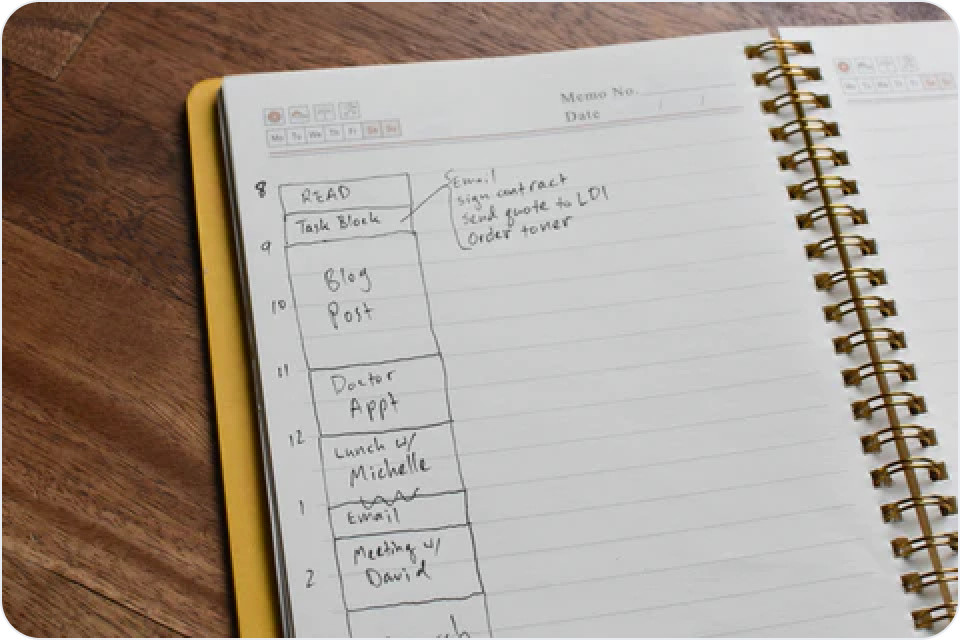 Memo No.
Date / /
Mo Tu We Th Fr Sa Su
Mo Tu We Th Fr Sa Su
8
READ
Task Block
Email
sign contract
send quote to LDI
Order toner
9
Blog
10
Post
11
Doctor
Appt
12
Lunch w/
Michelle
1
Email
Meeting w/
2
David